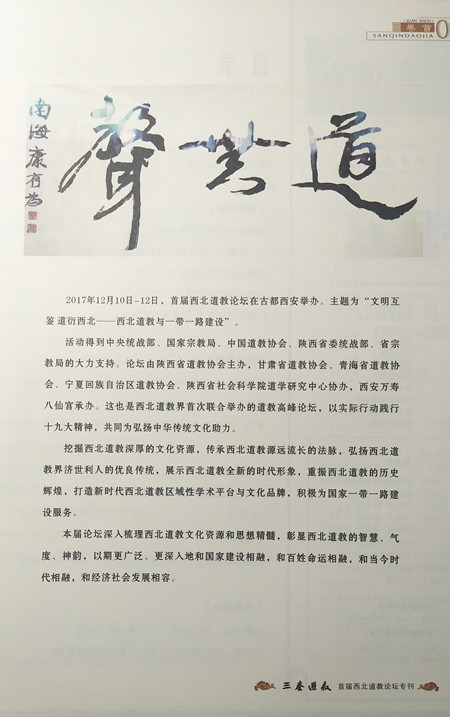 JUAN SHOU
卷首
SANQINDAOJIA
道無聲
南海康有为
2017年12月10日-12日,首届西北道教论坛在古都西安举办。主题为“文明互
鉴 道衍西北——西北道教与一带一路建设”。
活动得到中央统战部、国家宗教局、中国道教协会、陕西省委统战部、省宗
教局的大力支持。论坛由陕西省道教协会主办,甘肃省道教协会、青海省道教协
会、宁夏回族自治区道教协会、陕西省社会科学院道学研究中心协办,西安万寿
八仙宫承办。这也是西北道教界首次联合举办的道教高峰论坛,以实际行动践行
十九大精神,共同为弘扬中华传统文化助力。
挖掘西北道教深厚的文化资源,传承西北道教源远流长的法脉,弘扬西北道
教界济世利人的优良传统,展示西北道教全新的时代形象,重振西北道教的历史
辉煌,打造新时代西北道教区域性学术平台与文化品牌,积极为国家一带一路建
设服务。
本届论坛深入梳理西北道教文化资源和思想精髓,彰显西北道教的智慧、气
度、神韵,以期更广泛、更深入地和国家建设相融,和百姓命运相融,和当今时
代相融,和经济社会发展相容。
三秦道教 首届西北道教论坛专刊